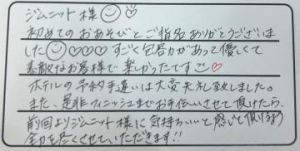 ジムニット様
初めてのおあそびとご指名ありがとうございま
した♡♡♡すごく包容力があって優しくて
素敵なお客様で楽しかったです♡
ホテルの予約手違いは大変失礼致しました。
また、是非フィニッシュまでお手伝いさせて頂けたら、
前回よりジムニット様に気持ちいい…と感じて頂けるよう
全力を尽くさせていただきます!!